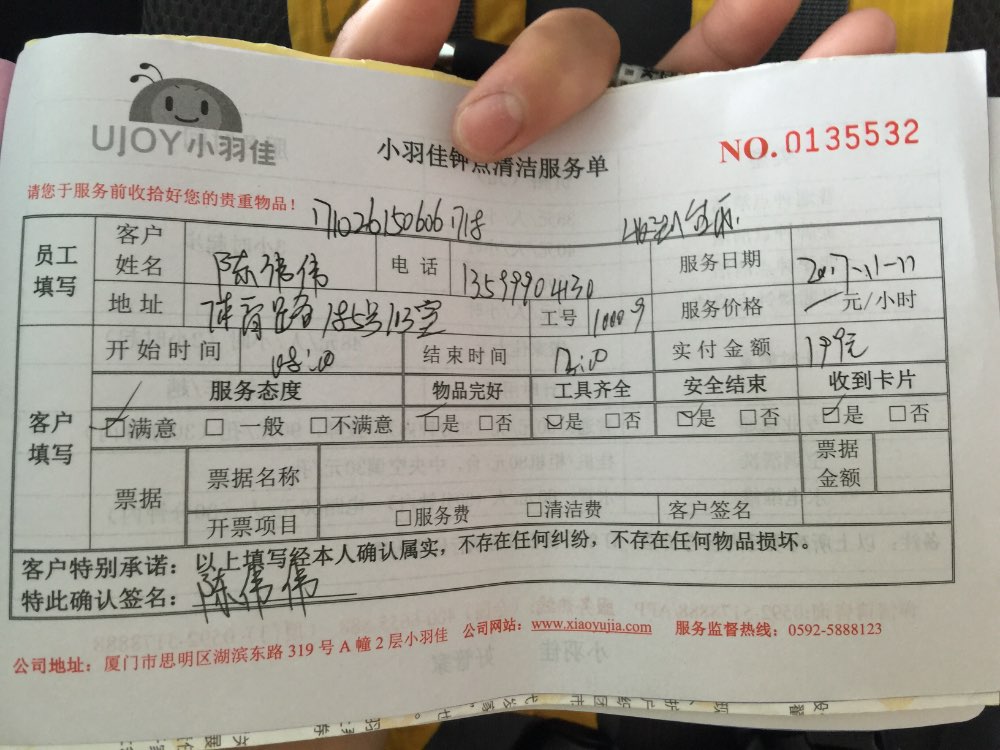 UJOY小羽佳
小羽佳钟点清洁服务单
NO.0135532
请您于服务前收拾好您的贵重物品！
员工填写
客户姓名 陈伟伟 电话 13599904130 服务日期 2017-11-
地址 体育路 工号 服务价格 元/小时
客户填写
开始时间 结束时间 实付金额 199元
服务态度 物品完好 工具齐全 安全结束 收到卡片
☑满意 □一般 □不满意 ☑是 □否 ☑是 □否 ☑是 □否 ☑是 □否
票据 票据名称 票据金额
开票项目 □服务费 □清洁费 客户签名
客户特别承诺：以上填写经本人确认属实，不存在任何纠纷，不存在任何物品损坏。
特此确认签名：陈伟伟
公司地址：厦门市思明区湖滨东路 319 号 A 幢 2 层小羽佳 公司网站：www.xiaoyujia.com 服务监督热线：0592-5888123